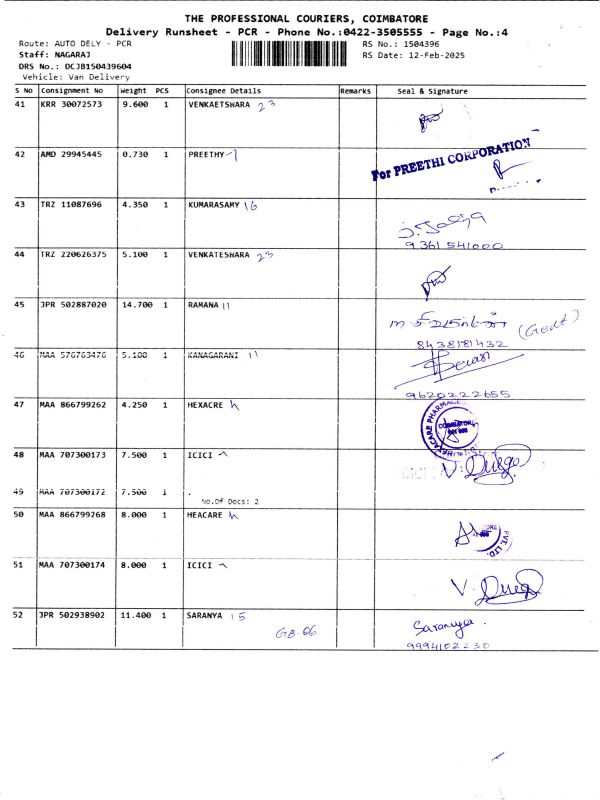 THE PROFESSIONAL COURIERS, COIMBATORE
Delivery Runsheet - PCR - Phone No.:0422-3505555 - Page No.:4
Route: AUTO DELY - PCR RS No.: 1504396
Staff: NAGARAJ RS Date: 12-Feb-2025
DRS No.: DCJB150439604
Vehicle: Van Delivery
S No Consignment No Weight PCS Consignee Details Remarks Seal & Signature
41 KRR 30072573 9.600 1 VENKAETSWARA 23
42 AMD 29945445 0.730 1 PREETHY
For PREETHI CORPORATION
43 TRZ 11087696 4.350 1 KUMARASAMY 16
9361541000
44 TRZ 220626375 5.100 1 VENKATESWARA 23
45 JPR 502887020 14.700 1 RAMANA 11
8438181432
46 MAA 576763476 5.100 1 KANAGARANI 11
9620222655
47 MAA 866799262 4.250 1 HEXACRE
COIMBATORE
48 MAA 707300173 7.500 1 ICICI
49 MAA 707300172 7.500 1 .
No.Of Docs: 2
50 MAA 866799268 8.000 1 HEACARE
PVT. LTD.
51 MAA 707300174 8.000 1 ICICI
52 JPR 502938902 11.400 1 SARANYA 15
GB-66
Saranya
9994102230